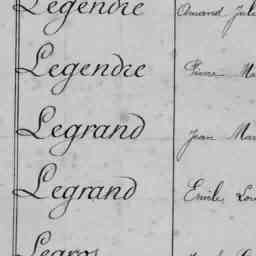 Legendre Amand Jule
Legendre Pierre Ma
Legrand Jean Mar
Legrand Emile Lou
Legros